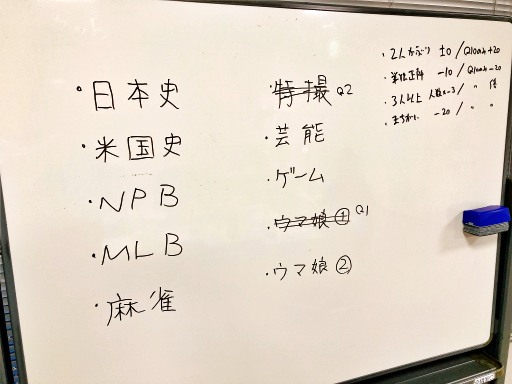 ・日本史
・米国史
・NPB
・MLB
・麻雀
・特撮 Q2
・芸能
・ゲーム
・ウマ娘① Q1
・ウマ娘②
・2人かぶり ±0 / Q10のみ+20
・単独正解 -10 / Q10のみ-20
・3人以上 人数×-3 / 〃 倍
・まちがい -20 / 〃 〃